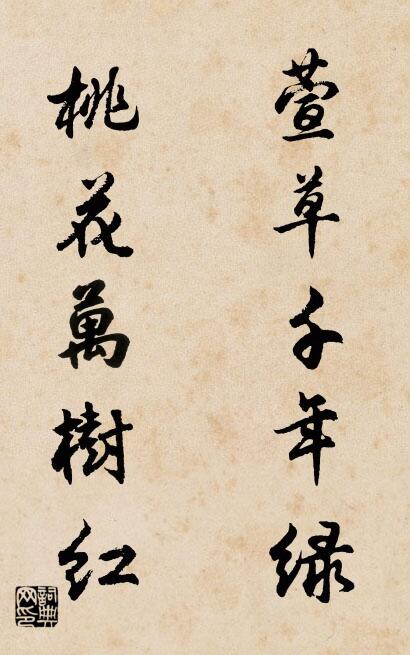 萱草千年绿
桃花萬樹红
詞典网印